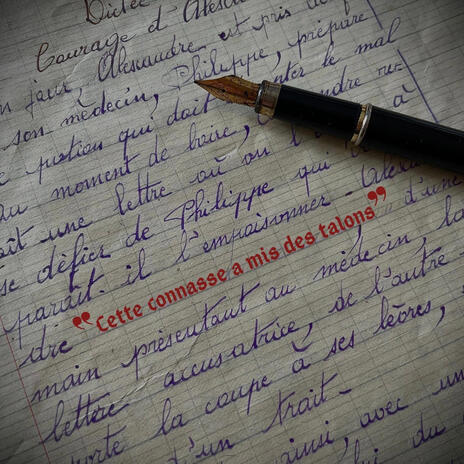 Dictée
Courage d'Alexandre
n jour, Alexandre est pris de f
son médecin, Philippe, prépare
e potion qui doit enter le mal
au moment de boire, endre re-
ait une lettre où on l' à
se défier de Philippe qui
paraît-il l'empoisonner. Ale
❝Cette connasse a mis des talons❞
dre d'une
main présentant au médecin la
lettre accusatrice, de l'autre
porte la coupe à ses lèvres,
d'un trait.
ainsi, avec un
du